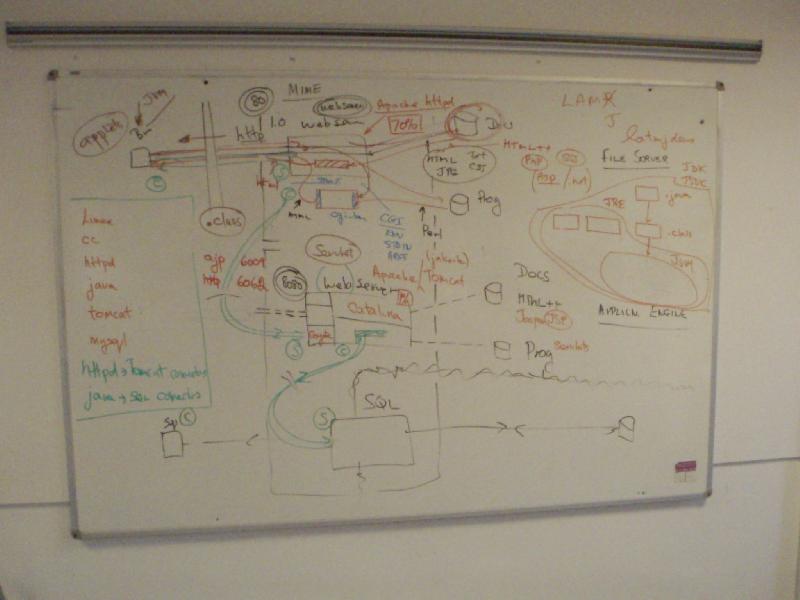 MIME
80
Jvm
applet
http
1.0
webserver
Apache httpd
70%
Docs
LAMP
J
HTML
Txt
JPE
HTML++
PHP
ASP
FILE SERVER
JDK
.java
JRE
.class
JVM
APPLICN ENGINE
html
cgi-bin
Prog
CGI
ENV
STDIN
ARGS
Perl
.class
Linux
cc
httpd
java
tomcat
mysql
httpd → Tomcat connector
java → SQL connector
ajp 6009
http
Servlet
(jakarta)
Apache Tomcat
8080
webserver
Catalina
Docs
HTML++
JSP
Prog Servlets
S
C
SQL
S
C